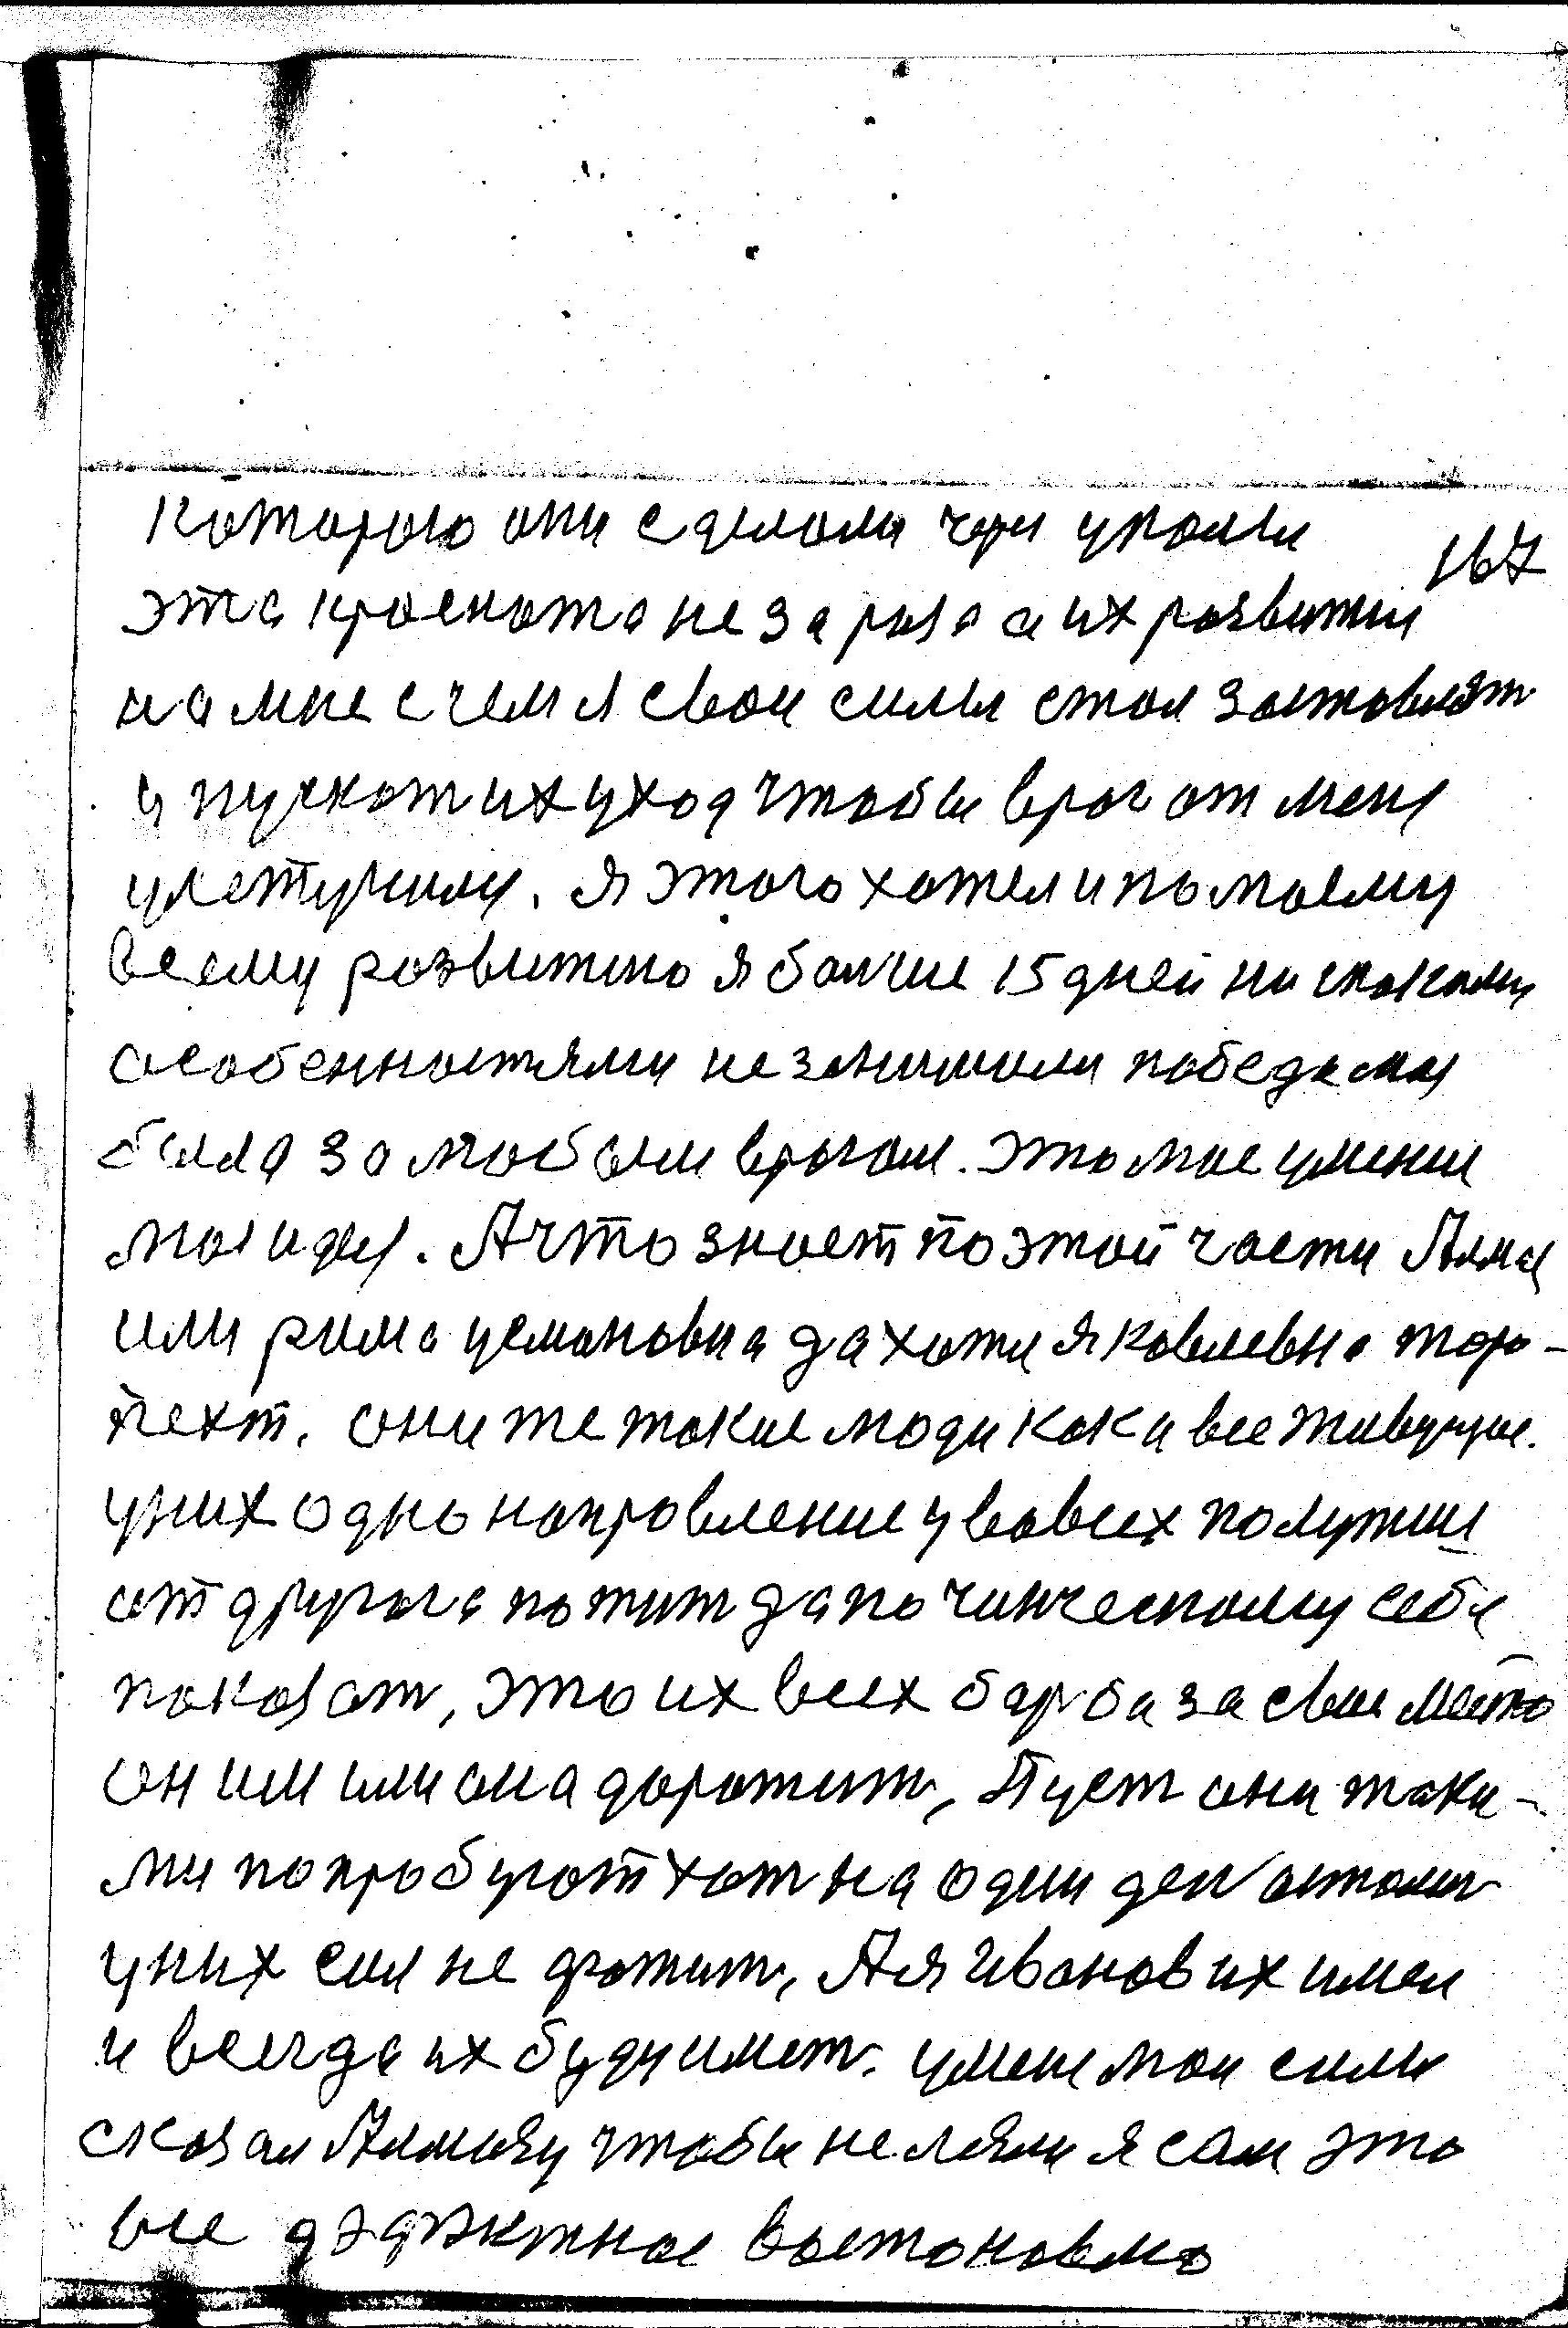 которою они сделали чри уколы
167
эта краснота не зараза а их развитии
на мне с чем я свои силы стал заставлят
и пускат их уход чтобы враг от меня
улетучился. я этого хотел и по моему
всему развитию я болше 15 дней ни
особенностями не занимали победа моя
была за любым врагом. это мое умении
моя идея. А что знает по этой части Алма
или рима усмановна да хотя яковлевна тера-
певт. они же такие люди как и все живущие.
у них одно направление у вовсех получит
от другога пожит да по
показат, это их всех барба за свое место
он им или она дорожит, Пуст они таки-
ми попробуют хот на один ден астатся
у них сил не хватит, А я Иванов их имел
и всегда их буду имет. умени мои силы
сказал чтобы не лезли я сам это
все дефектное востоновлю